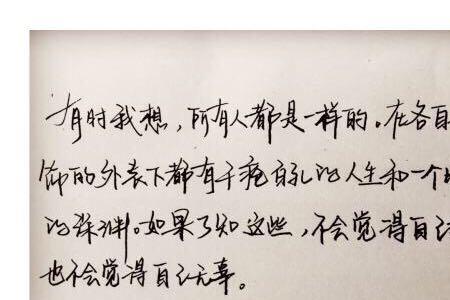 有时我想,所有人都是一样的。在各自
饰的外表下都有千疮百孔的人生和一个
的深渊。如果了知这些,不会觉得自己
也不会觉得自己无辜。